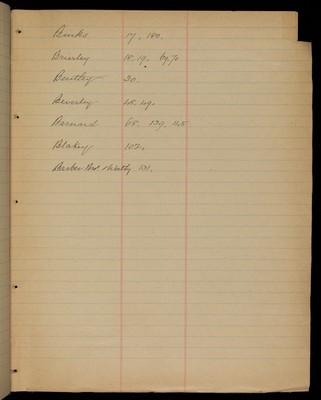 Binks 17. 180.
Brierley 18. 19. 69. 70
Bentley 20.
Beverley 48. 49.
Barnard 68. 139. 145
Blakey 102.
Barber 131.